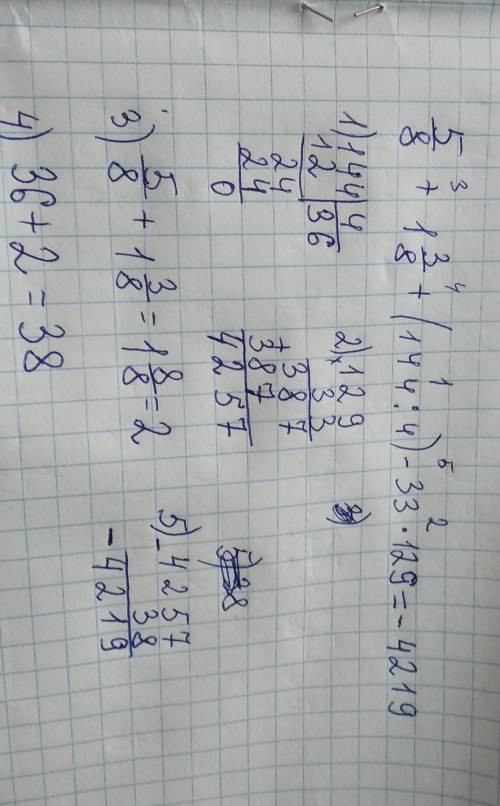 5/8 + 1 3/8 + (144:4) - 33·129 = -4219
3 4 1 5 2
1) 144 | 4
12 | 36
24
24
0
2) × 129
33
387
+ 387
4257
3) 5/8 + 1 3/8 = 1 8/8 = 2
4) 36 + 2 = 38
5) - 4257
38
- 4219